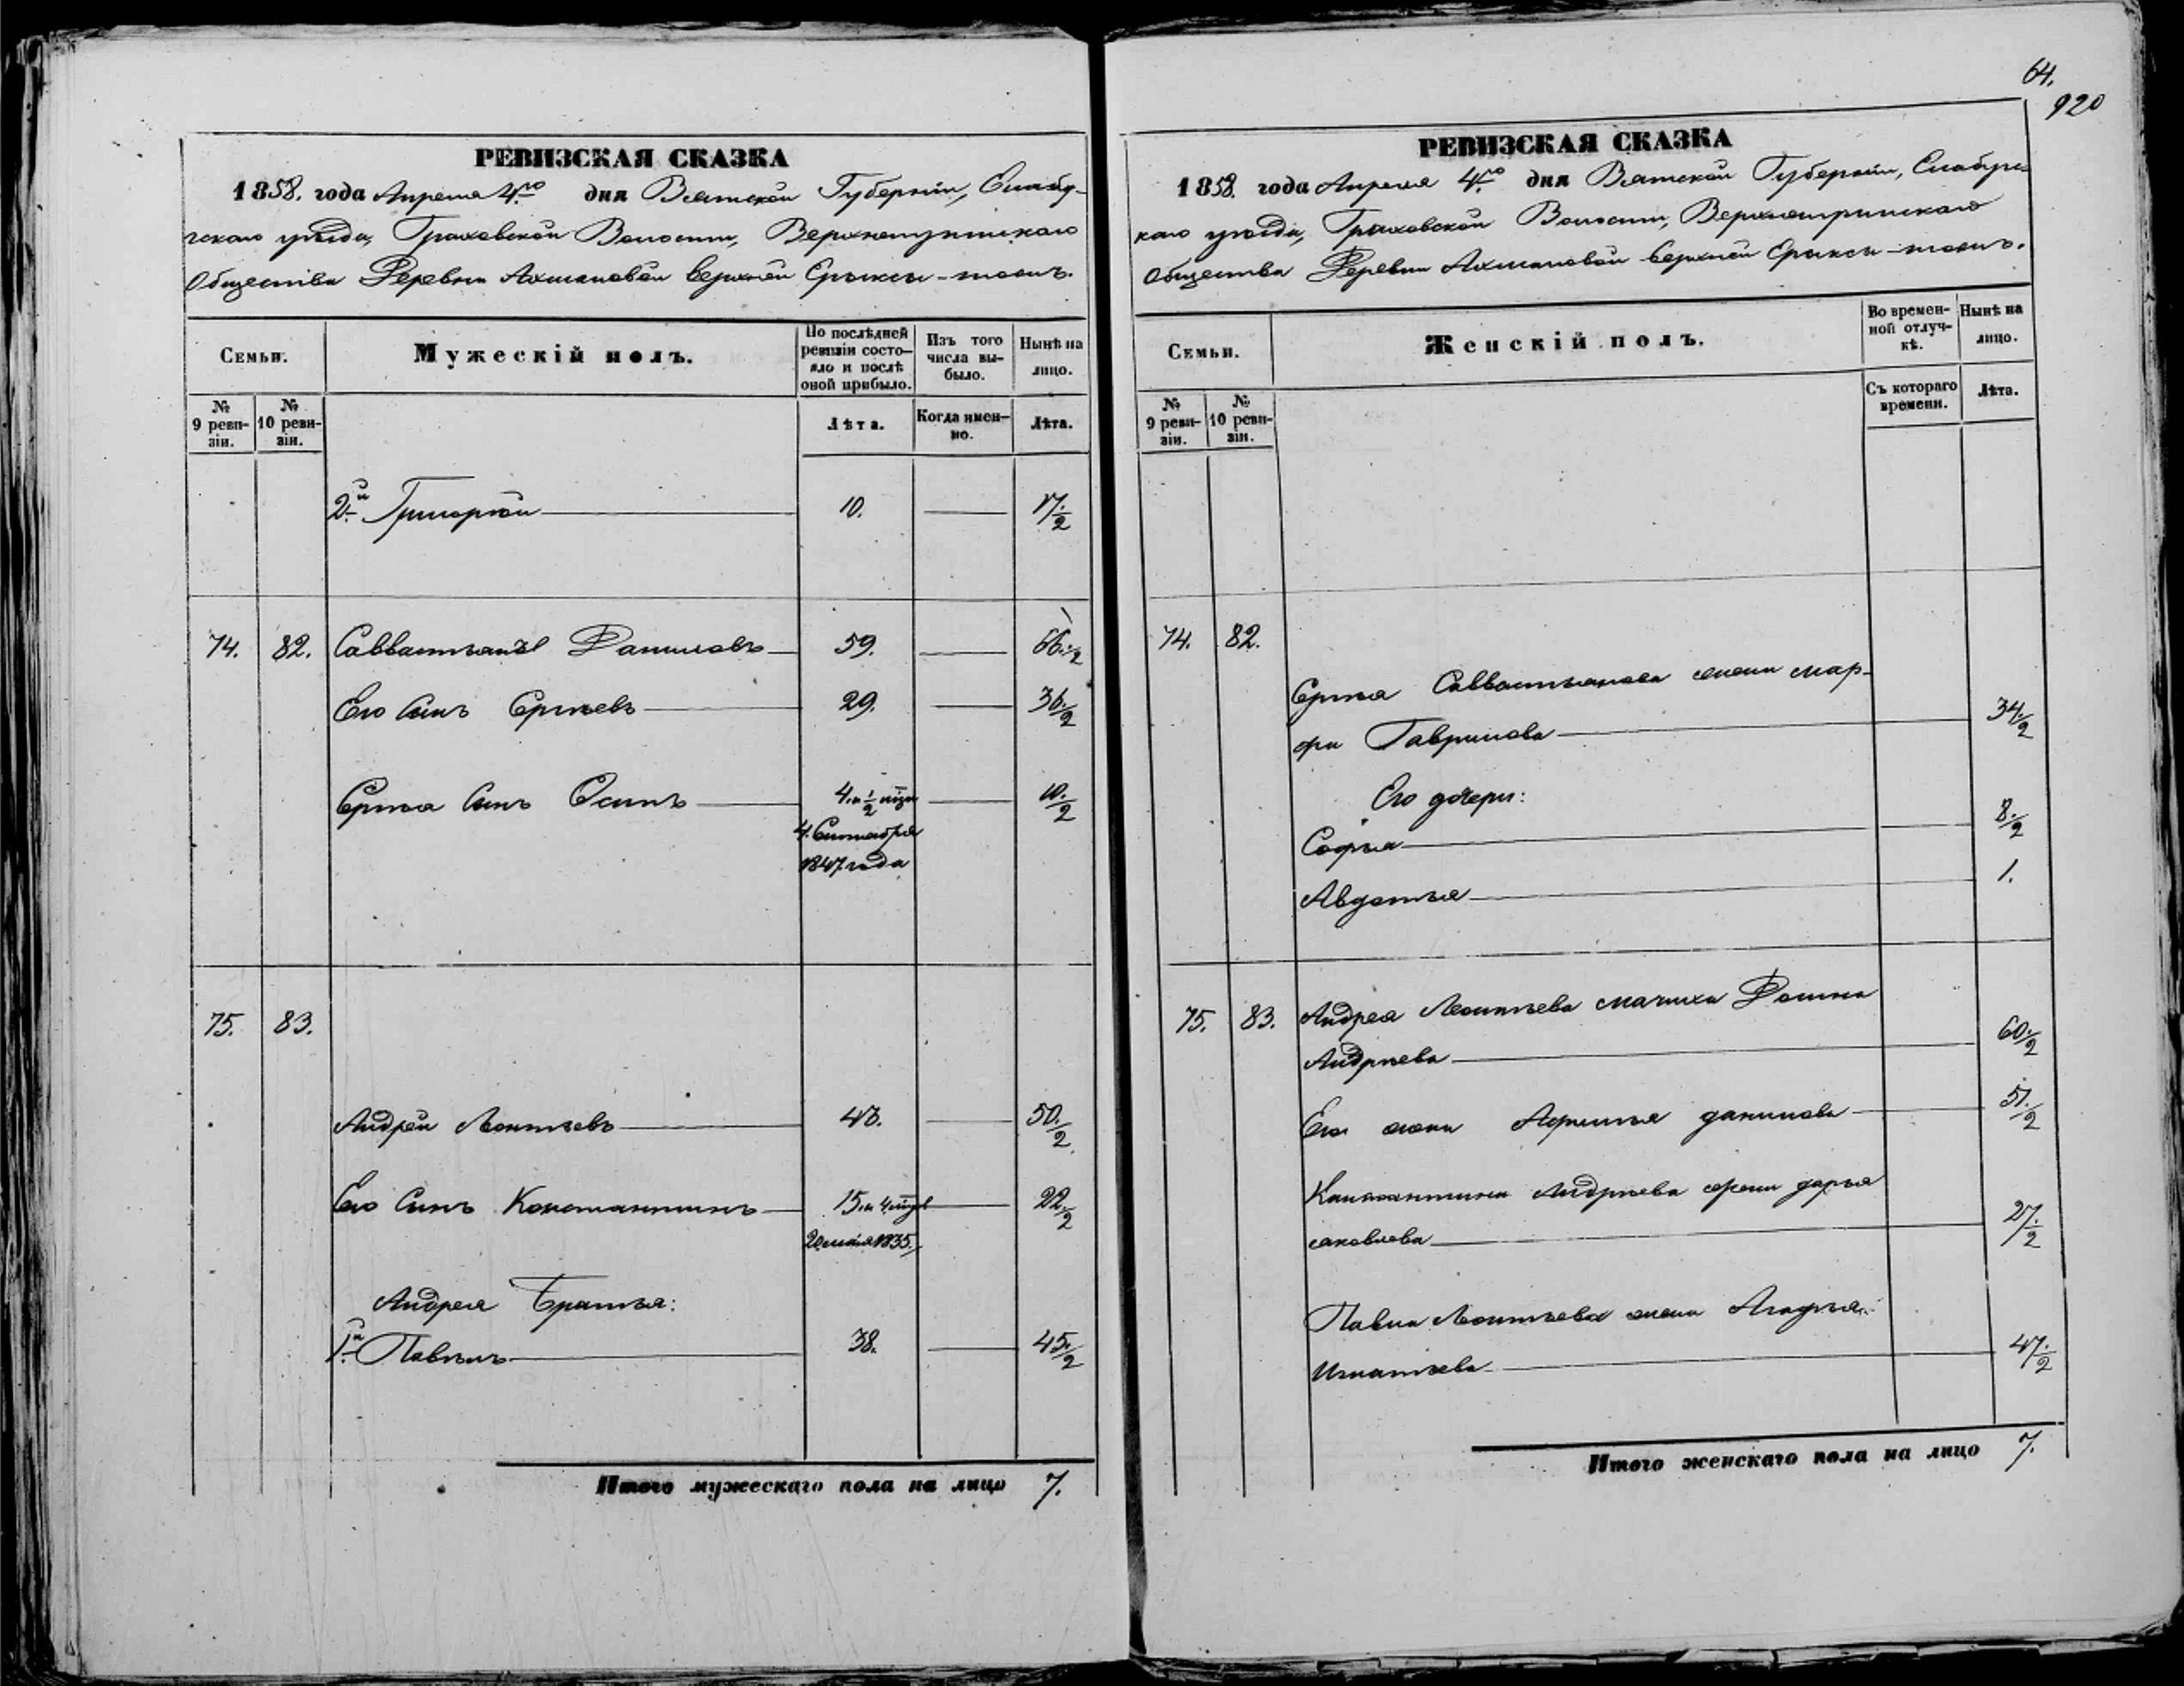 РЕВИЗСКАЯ СКАЗКА
1858. года Апреля 4го дня Вятской Губерніи, Елабу-
гскаго уѣзда, Граховской Волости,
Общества Деревни Верхней
Семьи.
Мужескій полъ.
По послѣдней ревизіи состо-яло и послѣ оной прибыло.
Изъ того числа вы-было.
Нынѣ на лицо.
№ 9 реви-зіи.
№ 10 реви-зіи.
Лѣта.
Когда имен-но.
Лѣта.
2й Григорій 10. 17.½
74. 82. Савватѣанъ Даниловъ 59. 66.½
Его Сынъ Ергѣевъ 29. 36.½
Сынъ Осипъ 4. и ½ 10.½
4. Сентября
1847 года
75. 83.
Андрей Леонтьевъ 43. 50.½
Его Сынъ Константинъ 15. и 4 22.½
20 мая 1835.
Андрея Братья:
1й Павелъ 38. 45.½
Итого мужескаго пола на лицо 7.
64.
920
РЕВИЗСКАЯ СКАЗКА
1858. года Апреля 4го дня Вятской Губерніи, Елабугс-
каго уѣзда, Граховской Волости,
Общества Деревни верхней
Семьи.
Женскій полъ.
Во времен-ной отлуч-кѣ.
Нынѣ на лицо.
№ 9 реви-зіи.
№ 10 реви-зіи.
Съ котораго времени.
Лѣта.
74. 82.
Савватѣанова жена мар-
фа Гаврилова 34.½
Его дочери:
Софья 8.½
Авдотья 1.
75. 83. Андрея Леонтьева мачиха
Андреева 60.½
Его жена данилова 51.½
Константина Андреева жена дарья
яковлева 27.½
Павла Леонтьева жена Агафья
Игнатьева 47.½
Итого женскаго пола на лицо 7.